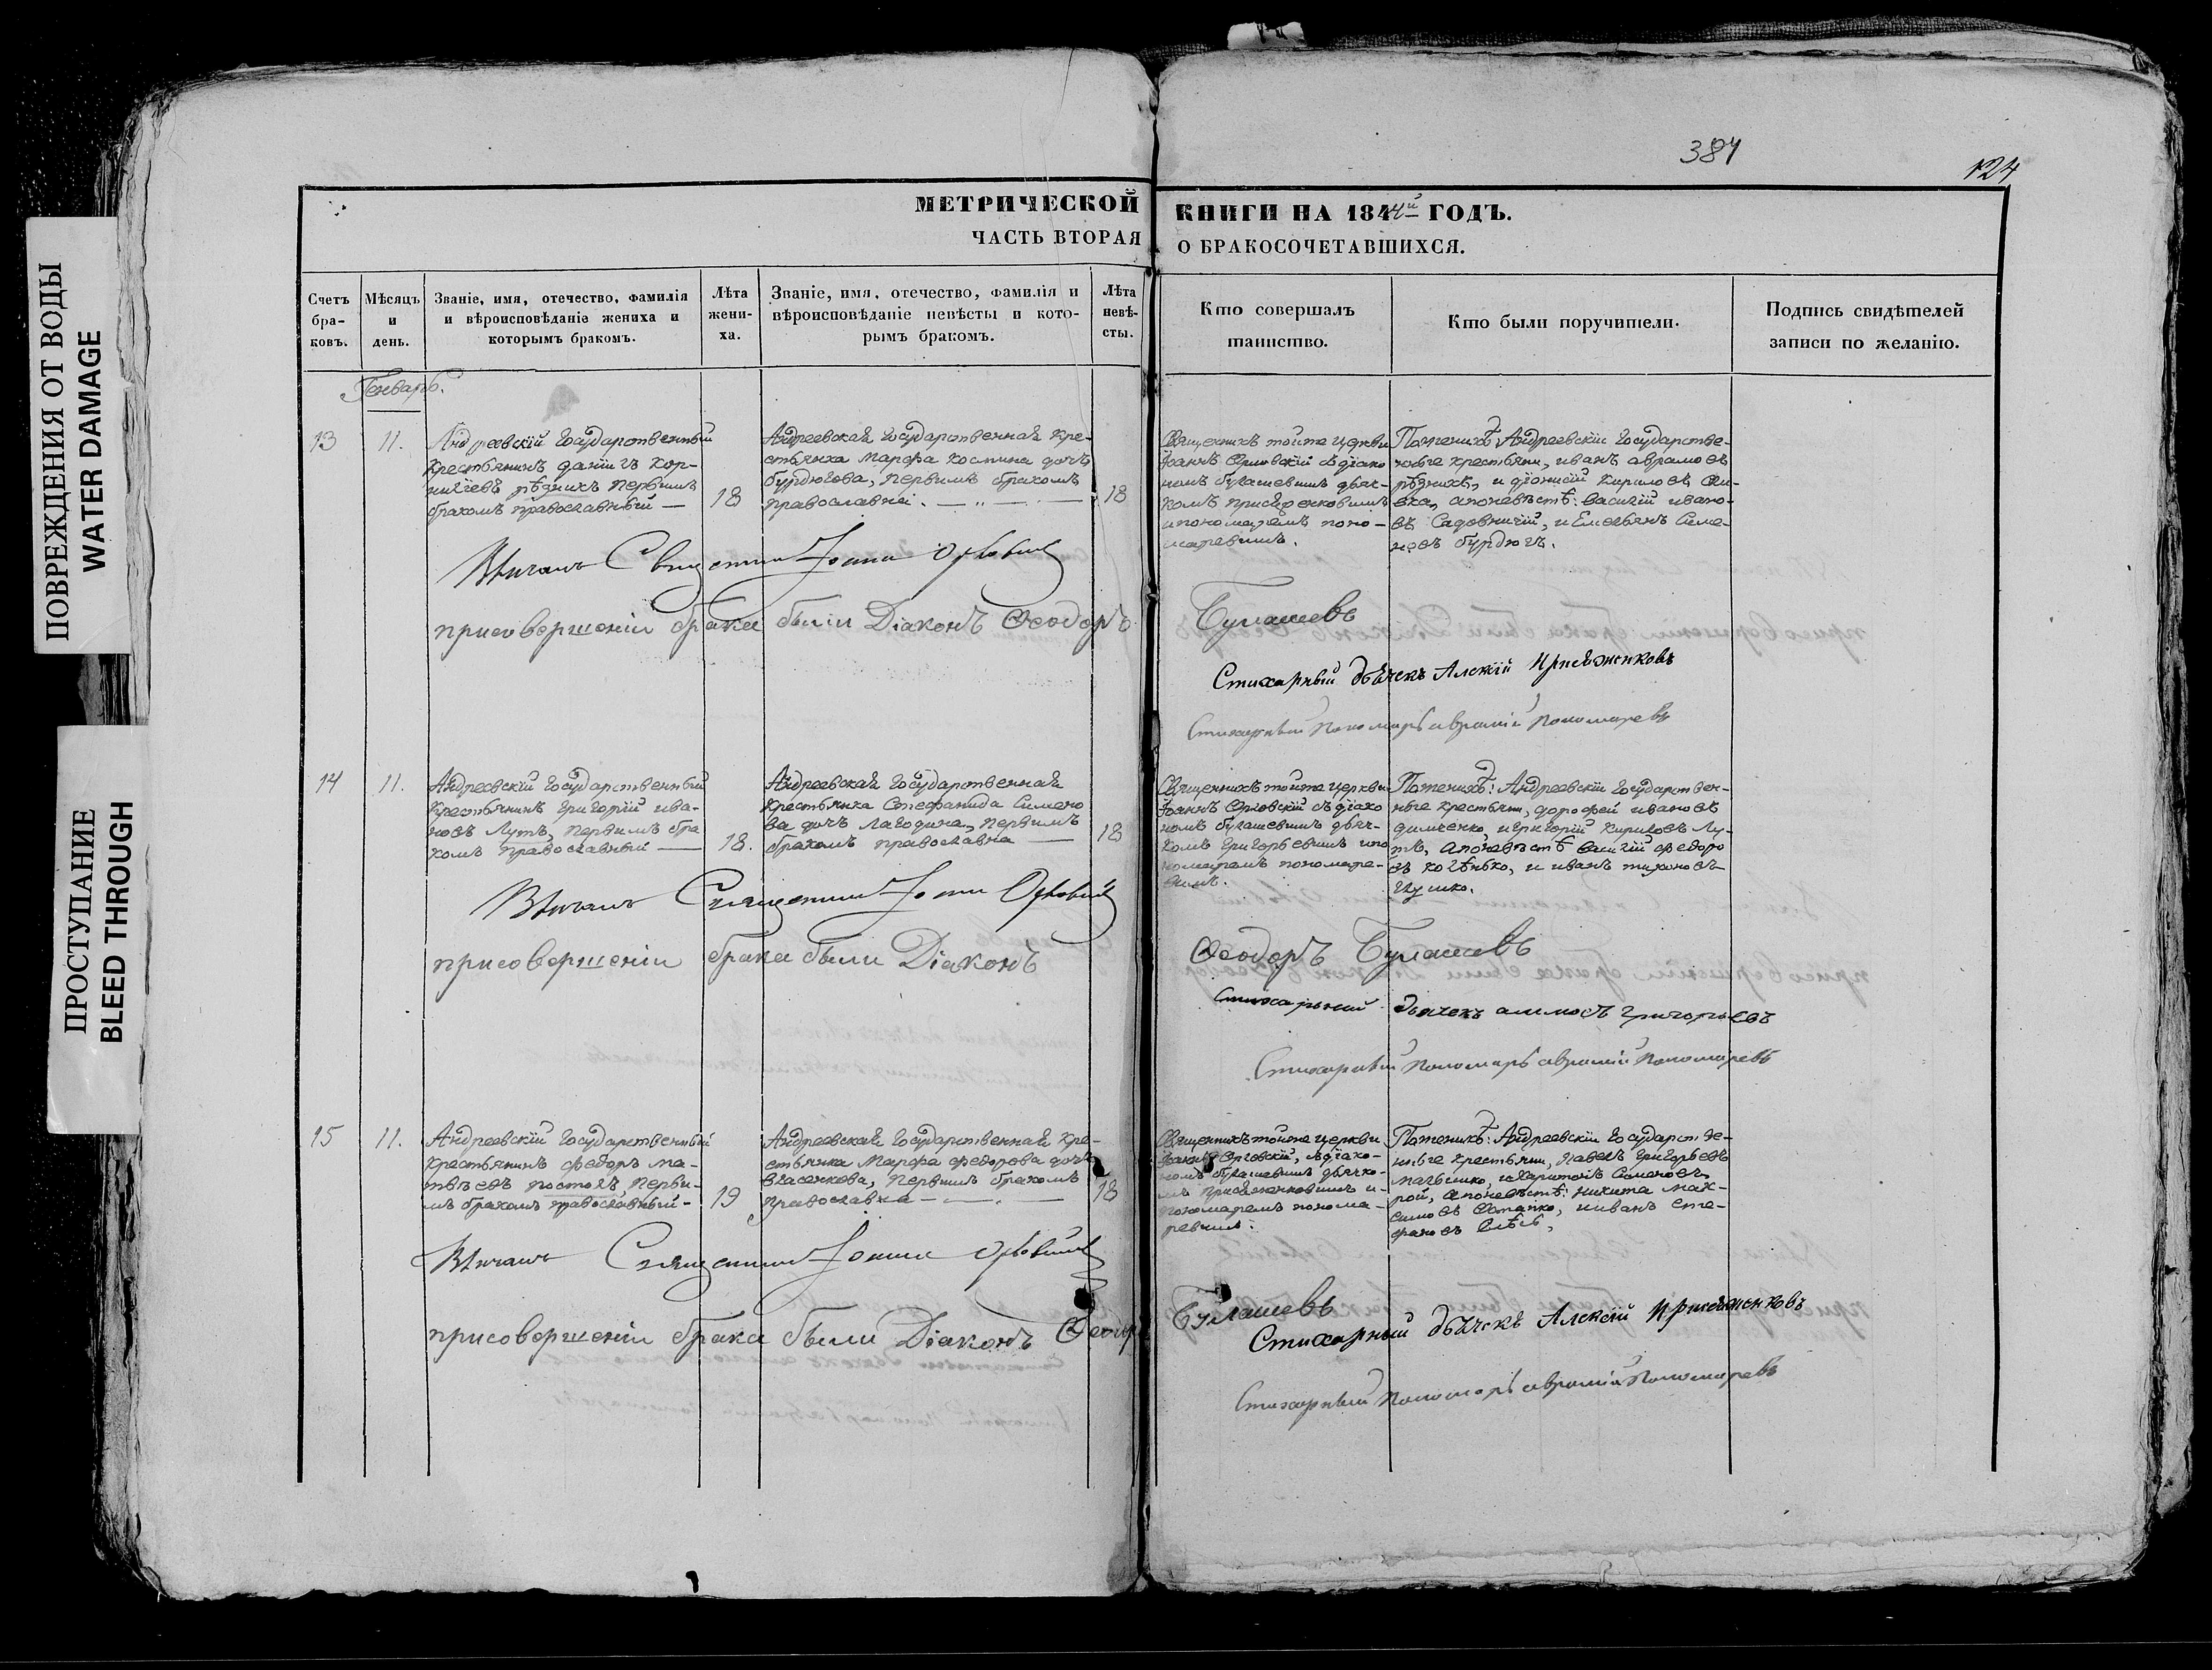 387
124
ПОВРЕЖДЕНИЯ ОТ ВОДЫ
WATER DAMAGE
ПРОСТУПАНИЕ
BLEED THROUGH
МЕТРИЧЕСКОЙ КНИГИ НА 1844й ГОДЪ.
ЧАСТЬ ВТОРАЯ О БРАКОСОЧЕТАВШИХСЯ.
Счетъ
бра-
ковъ.
Мѣсяцъ
и
день.
Званіе, имя, отечество, фамилія
и вѣроисповѣданіе жениха и
которымъ бракомъ.
Лѣта
жени-
ха.
Званіе, имя, отечество, фамилія и
вѣроисповѣданіе невѣсты и кото-
рымъ бракомъ.
Лѣта
невѣ-
сты.
Кто совершалъ
таинство.
Кто были поручители.
Подпись свидѣтелей
записи по желанію.
Генварь.
13
11.
Андреевскій Государственный
крестьянинъ даніилъ кор-
ниліевъ рѣзникъ первымъ
бракомъ православный —
18
Андреевская Государственная кре-
стьянка Марфа Космина дочь
бурдюгова, первымъ бракомъ
православная. —
18
Священникъ тойже церкви
Іоаннъ Орловскій съ діако
номъ булашевымъ дьяч-
комъ присѣженковымъ
и пономаремъ поно-
маревымъ.
Поженихѣ Андреевскіи Государстве-
ные крестьяни, иванъ аврамовъ
рѣзникъ, и діонисій кириловъ
апоневѣстѣ: василій ивано-
въ Садовничій, и Емельянъ Симо-
новъ бурдюгъ.
Вѣнчалъ Священникъ Іоаннъ Орловскій
присовершеніи брака были Діаконъ Ѳеодоръ Булашевъ
Стихарный дьячекъ Алексій Присѣженковъ
Стихарный Пономарь аврамій Пономаревъ
14
11.
Андреевскій Государственный
крестьянинъ григорій ива-
новъ Лутъ, первымъ бра
комъ православный —
18.
Андреевская Государственная
крестьянка Стефанида Симено
ва дочь Лагодина, первымъ
бракомъ православна —
18
Священникъ тойже церкви
Іоаннъ Орловскій съ діако
номъ булашевымъ дьяч-
комъ григорьевымъ ипо
номаремъ пономаре-
вымъ.
Поженихѣ: Андреевскіи Государствен-
ные крестьяни, дорофей ивановъ
димченко, игригорій кириловъ Лу-
тъ, апоневѣстѣ василій федоро
въ колѣнько, и иванъ тихоновъ
Вѣнчалъ Священникъ Іоаннъ Орловскій
присовершеніи брака были Діаконъ Ѳеодоръ Булашевъ
Стихарный дьячекъ григорьевъ
Стихарный Пономарь аврамій Пономаревъ
15
11.
Андреевскій Государственный
крестьянинъ федоръ ма-
твѣевъ постолъ, первы-
мъ бракомъ православный -
19
Андреевская Государственная кре-
стьянка Марфа федорова дочь
власенкова, первымъ бракомъ
православна —
18
Священникъ тойже церкви
Іоаннъ Орловскій, съ діако-
номъ булашевымъ дьячко-
мъ присѣженковымъ и
пономаремъ понома-
ревымъ.
Поженихѣ: Андреевскіи Государстве-
нные крестьяни, Павелъ григорьевъ
малышко, и Харитонъ Семеновъ
рой, апоневѣстѣ: никита мак-
симовъ Остапко, ииванъ сте-
фановъ
Вѣнчалъ Священникъ Іоаннъ Орловскій
присовершеніи брака были Діаконъ Ѳеодоръ Булашевъ
Стихарный дьячекъ Алексій Присѣженковъ
Стихарный Пономарь аврамій Пономаревъ